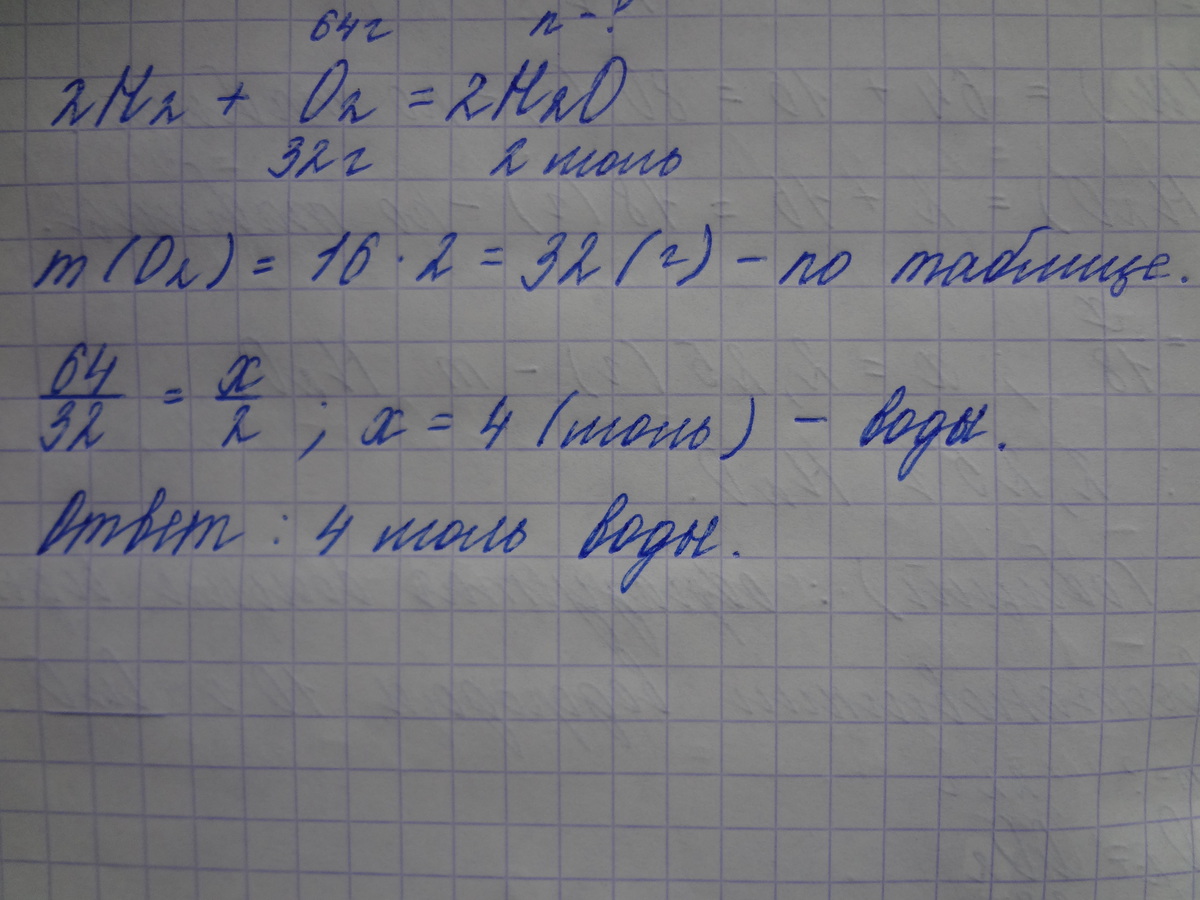 64г n - ?
2H2 + O2 = 2H2O
32г 2 моль
m (O2) = 16 · 2 = 32 (г) - по таблице.
64/32 = x/2 ; x = 4 (моль) - воды.
Ответ : 4 моль воды.